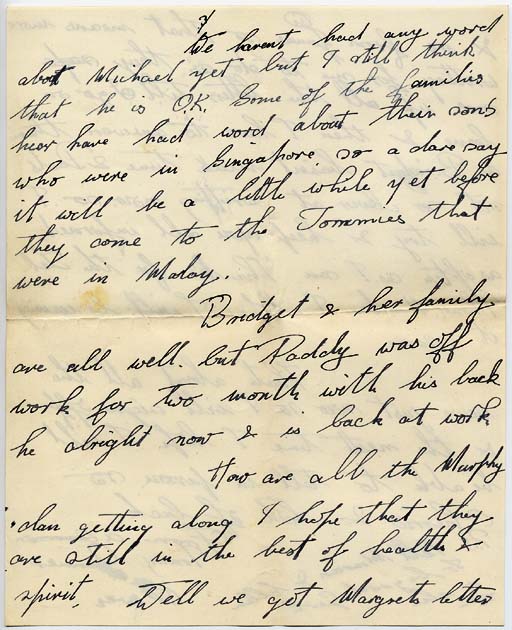 We havent had any word
about Michael yet but I still think
that he is O.K. Some of the families
hear have had word about their sons
who were in Singapore, so a dare say
it will be a little while yet before
they come to the Tommies that
were in Malay.
Bridget & her family
are all well. but Paddy was off
work for two month with his back
he alright now & is back at work
How are all the Murphy
clan getting along I hope that they
are still in the best of health &
spirit. Well we got Margrets letter